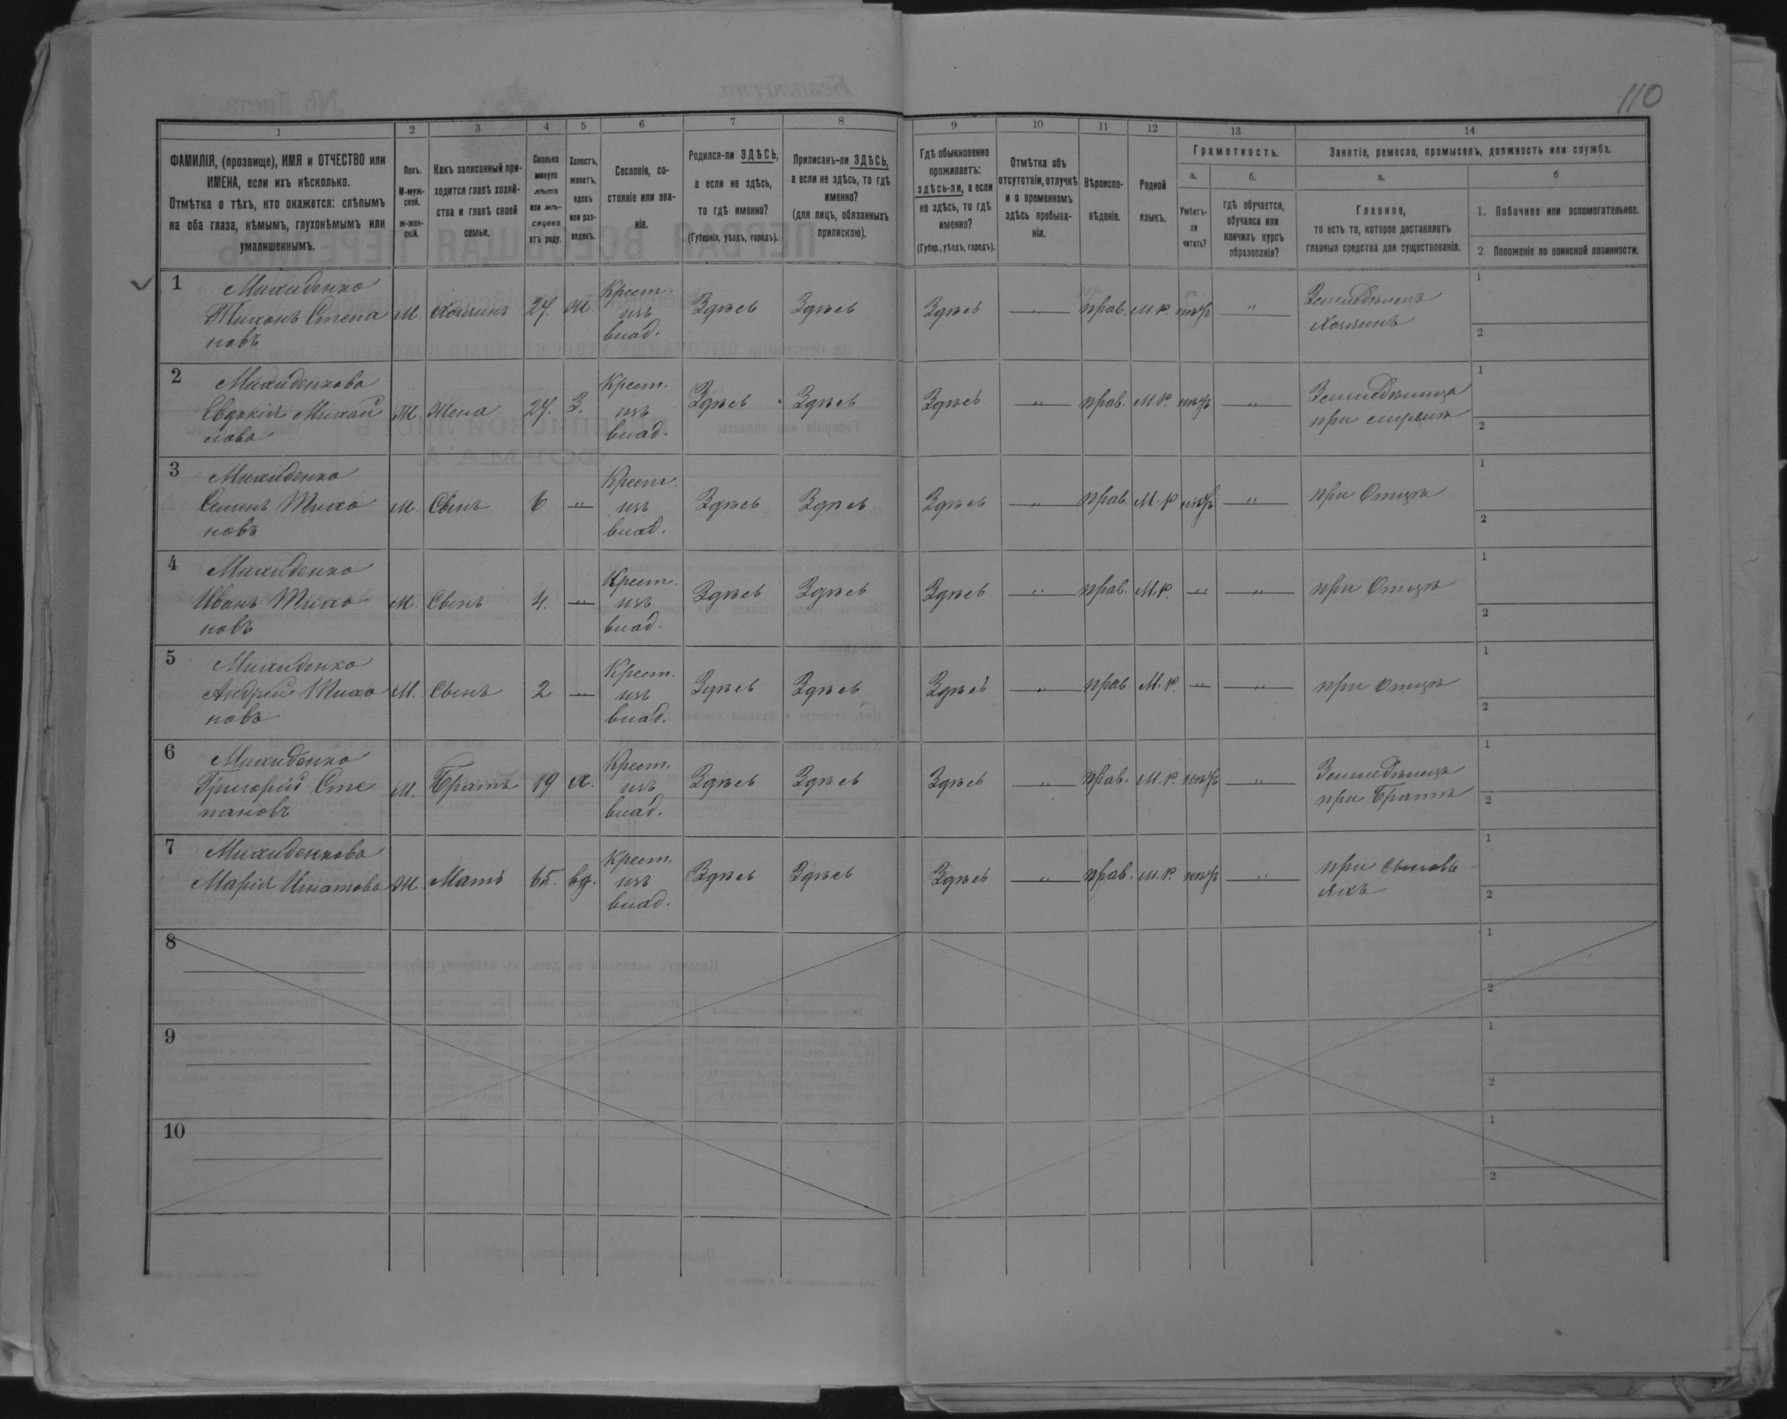 110
1 2 3 4 5 6 7 8 9 10 11 12 13 14
ФАМИЛІЯ, (прозвище), ИМЯ и ОТЧЕСТВО или
ИМЕНА, если ихъ нѣсколько.
Отмѣтка о тѣхъ, кто окажется: слѣпымъ
на оба глаза, нѣмымъ, глухонѣмымъ или
умалишеннымъ.
Полъ.
М-муж-
ской.
Ж-жен-
скій.
Какъ записанный при-
ходится главѣ хозяй-
ства и главѣ своей
семьи.
Сколько
минуло
лѣтъ
или мѣ-
сяцевъ
отъ роду.
Холостъ,
женатъ,
вдовъ
или раз-
веденъ.
Сословіе, со-
стояніе или зва-
ніе.
Родился-ли ЗДѢСЬ,
а если не здѣсь,
то гдѣ именно?
(Губернія, уѣздъ, городъ).
Приписанъ-ли ЗДѢСЬ,
а если не здѣсь, то гдѣ
именно?
(для лицъ, обязанныхъ
припискою).
Гдѣ обыкновенно
проживаетъ:
здѣсь-ли, а если
не здѣсь, то гдѣ
именно?
(Губерн., уѣздъ, городъ).
Отмѣтка объ
отсутствіи, отлучкѣ
и о временномъ
здѣсь пребыва-
ніи.
Вѣроиспо-
вѣданіе.
Родной
языкъ.
Грамотность.
а.
Умѣетъ-
ли
читать?
б.
Гдѣ обучается,
обучался или
кончилъ курсъ
образованія?
Занятіе, ремесло, промыселъ, должность или служба.
а.
Главное,
то есть то, которое доставляетъ
главныя средства для существованія.
б
1. Побочное или вспомогательное.
2 Положеніе по воинской повинности.
1 Михиденко
Тихонъ Степа
новъ
М. Хозяинъ 27. Ж. Крест. изъ влад. Здѣсь Здѣсь Здѣсь — " — прав. М.р. негр — " — Земледѣлецъ
Хозяинъ
1
2
2 Михиденкова
Евдокія Михай
лова
Ж. Жена 27. З. Крест. изъ влад. Здѣсь Здѣсь Здѣсь — " — прав. М.р. негр — " — Земледѣлица
при мужѣ
1
2
3 Михиденко
Семенъ Тихо
новъ
М. Сынъ 6 — " — Крест. изъ влад. Здѣсь Здѣсь Здѣсь — " — прав. М.р негр — " — при Отцѣ
1
2
4 Михиденко
Иванъ Тихо
новъ
М. Сынъ 4. — " — Крест. изъ влад. Здѣсь Здѣсь Здѣсь — " — прав. М.р. — " — — " — при Отцѣ
1
2
5 Михиденко
Андрей Тихо
новъ
М. Сынъ 2 — " — Крест. изъ влад. Здѣсь Здѣсь Здѣсь — " — прав. М.р. — " — — " — при Отцѣ
1
2
6 Михиденко
Григорій Сте
пановъ
М. Братъ 19 Х. Крест. изъ влад. Здѣсь Здѣсь Здѣсь — " — прав. М.р. негр — " — Земледѣлецъ
при Братѣ
1
2
7 Михиденкова
Марія Игнатова
Ж Мать 65. вд. Крест. изъ влад. Здѣсь Здѣсь Здѣсь — " — прав. М.р. негр — " — при сыновь
яхъ
1
2
8
1
2
9
1
2
10
1
2